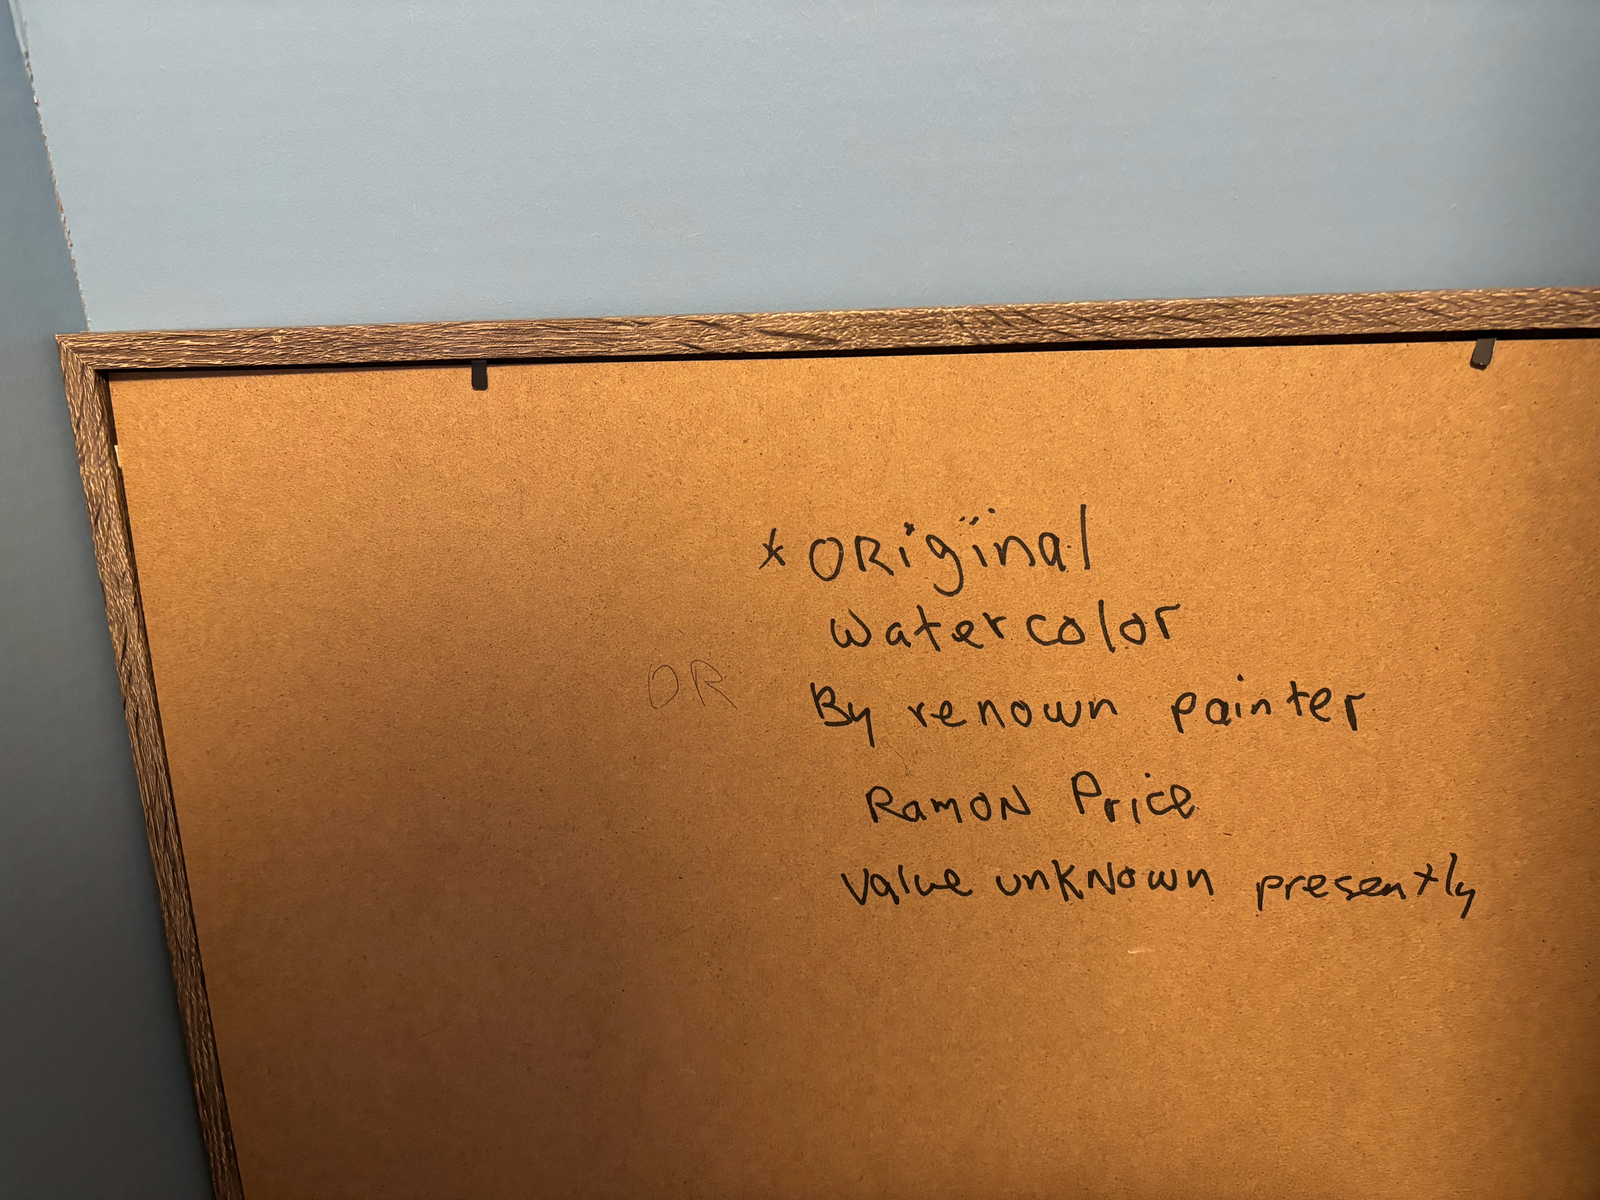 OR
* ORiginal
Watercolor
By renown painter
RamoN Price
Value unKNown presently